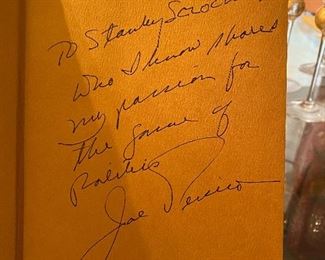 To Stanley
who I know shares
my passion for
the game of
Politics
Joe Persico